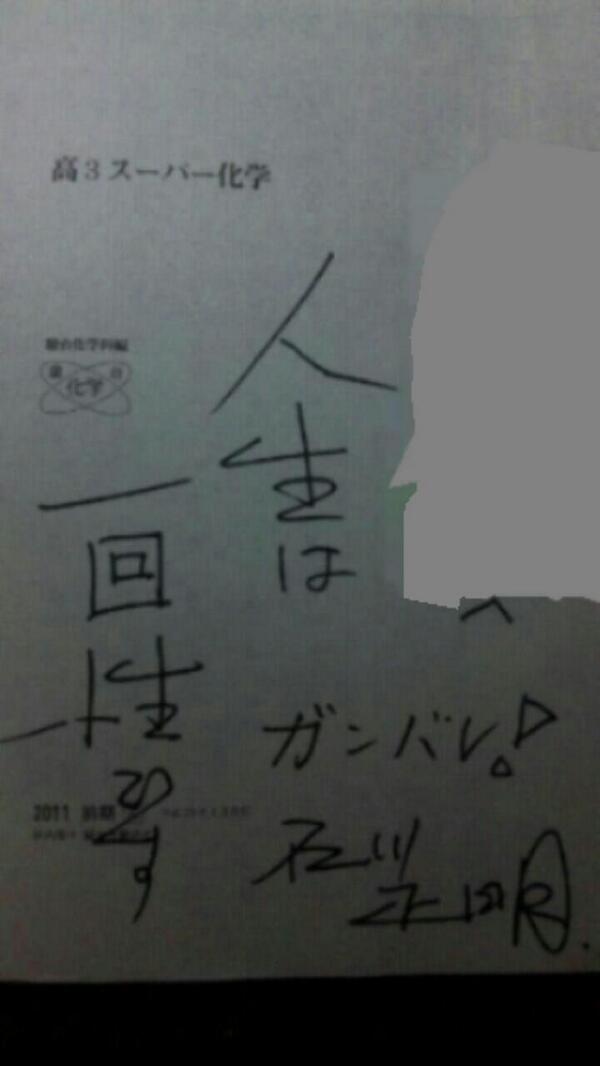 高3スーパー化学
駿台化学科編
駿台
化学
人生は
一回性
です
へ
ガンバレ!
石川正明
2011 前期